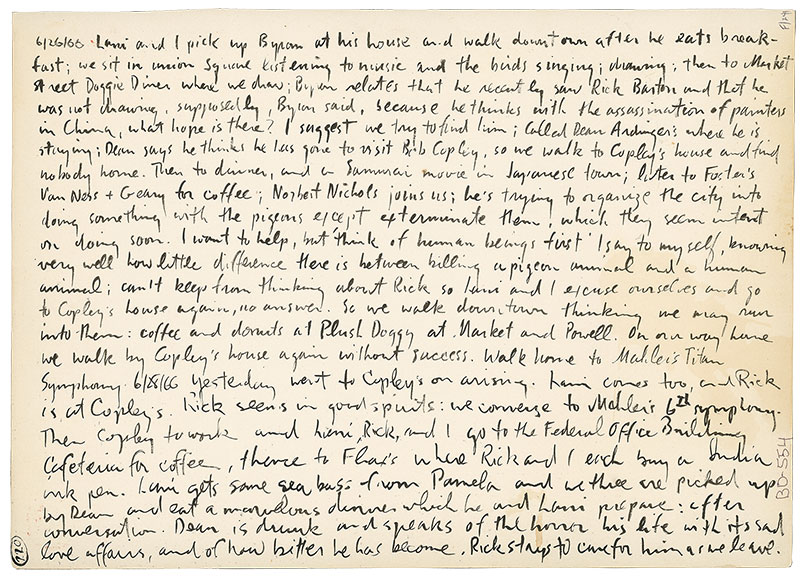 6/26/66 Lani and I pick up Byron at his house and walk downtown after he eats break-
fast; we sit in union Square listening to music and the birds singing; drawing; then to Market
street Doggie Diner where we draw; Byron relates that he recently saw Rick Barton and that he
was not drawing, supposedly, Byron said, because he thinks with the assassination of painters
in China, what hope is there? I suggest we try to find him; called Dean Ardinger's where he is
staying; Dean says he thinks he has gone to visit Bob Copley, so we walk to Copley's house and find
nobody home. Then to dinner, and a Samurai movie in Japanese town; later to Foster's
Van Ness + Geary for coffee; Norbert Nichols joins us; he's trying to organize the city into
doing something with the pigeons except exterminate them, which they seem intent
on doing soon. I want to help, but think of human beings first I say to myself, knowing
very well how little difference there is between killing a pigeon animal and a human
animal; can't keep from thinking about Rick so Lani and I excuse ourselves and go
to Copley's house again, no answer. So we walk downtown thinking we may run
into them: coffee and donuts at Plush Doggy at Market and Powell. On our way home
we walk by Copley's house again without success. Walk home to Mahler's Titan
Symphony. 6/28/66 Yesterday went to Copley's on arising. Lani comes too, and Rick
is at Copley's. Rick seems in good spirits: we converse to Mahler's 6th symphony.
Then Copley to work and Lani, Rick, and I go to the Federal Office Building
Cafeteria for coffee, thence to Flax's where Rick and I each buy a India
ink pen. Lani gets some sea bags from Pamela and we three are picked up
by Dean and eat a marvelous dinner which he and Lani prepare: after
conversation. Dean is drunk and speaks of the horror his life with its sad
love affairs, and of how bitter he has become. Rick stays to care for him as we leave.
BO-554